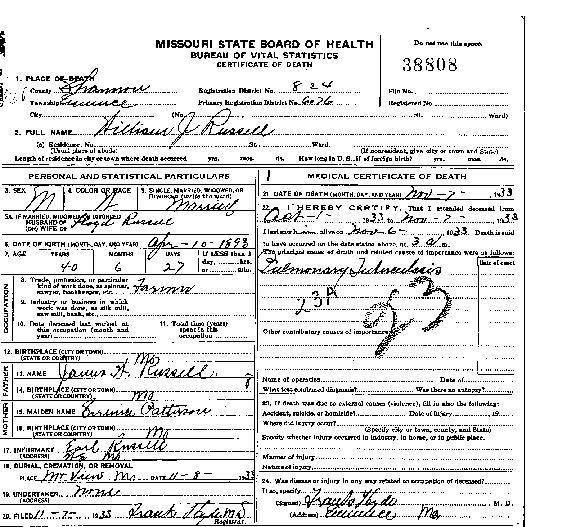 MISSOURI STATE BOARD OF HEALTH
BUREAU OF VITAL STATISTICS
CERTIFICATE OF DEATH
Do not use this space.
38808
1. PLACE OF DEATH
County Shannon Registration District No. 824 File No.
Township Eminence Primary Registration District No. 6076 Registered No.
City (No. St. Ward)
2. FULL NAME William J Russell
(a) Residence. No. St. Ward.
(Usual place of abode) (If nonresident, give city or town and State)
Length of residence in city or town where death occurred yrs. mos. ds. How long in U. S., if of foreign birth? yrs. mos. ds.
PERSONAL AND STATISTICAL PARTICULARS
3. SEX M 4. COLOR OR RACE W 5. SINGLE, MARRIED, WIDOWED, OR DIVORCED (write the word) Married
5A. IF MARRIED, WIDOWED, OR DIVORCED
HUSBAND OF (OR) WIFE OF Russell
6. DATE OF BIRTH (MONTH, DAY, AND YEAR) Apr-10-1893
7. AGE YEARS 40 MONTHS 6 DAYS 27 If LESS than 1 day, hrs. or min.
OCCUPATION
8. Trade, profession, or particular kind of work done, as spinner, sawyer, bookkeeper, etc. Farmer
9. Industry or business in which work was done, as silk mill, saw mill, bank, etc.
10. Date deceased last worked at this occupation (month and year)
11. Total time (years) spent in this occupation
12. BIRTHPLACE (CITY OR TOWN) Mo
(STATE OR COUNTRY)
FATHER
13. NAME James A. Russell
14. BIRTHPLACE (CITY OR TOWN) Mo
(STATE OR COUNTRY)
MOTHER
15. MAIDEN NAME Patterson
16. BIRTHPLACE (CITY OR TOWN) Mo
(STATE OR COUNTRY)
17. INFORMANT Earl Russell
(ADDRESS) Mo
18. BURIAL, CREMATION, OR REMOVAL
PLACE Mt View Mo. DATE 11-8- 1933
19. UNDERTAKER None
(ADDRESS)
20. FILED 11-7- 1933 Frank Hyde M.D.
Registrar.
MEDICAL CERTIFICATE OF DEATH
21. DATE OF DEATH (MONTH, DAY, AND YEAR) Nov-7- 1933
22. I HEREBY CERTIFY, That I attended deceased from
Oct-1- 1933 to Nov-7- 1933
I last saw alive on Nov-6- 1933 Death is said
to have occurred on the date stated above, at 3 a.m.
The principal cause of death and related causes of importance were as follows:
Date of onset
Pulmonary Tuberculosis
23A
23
Other contributory causes of importance:
Name of operation Date of
What test confirmed diagnosis? Was there an autopsy?
23. If death was due to external causes (violence), fill in also the following:
Accident, suicide, or homicide? Date of injury 19
Where did injury occur?
(Specify city or town, county, and State)
Specify whether injury occurred in industry, in home, or in public place.
Manner of injury
Nature of injury
24. Was disease or injury in any way related to occupation of deceased?
If so, specify
(Signed) Frank Hyde M. D.
(Address) Eminence Mo